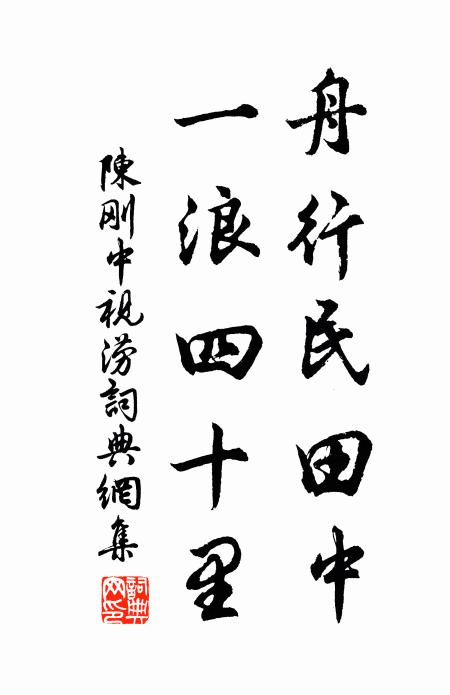 舟行民田中
一浪四十里
陳剛中視澇詞典網集
詞典網印